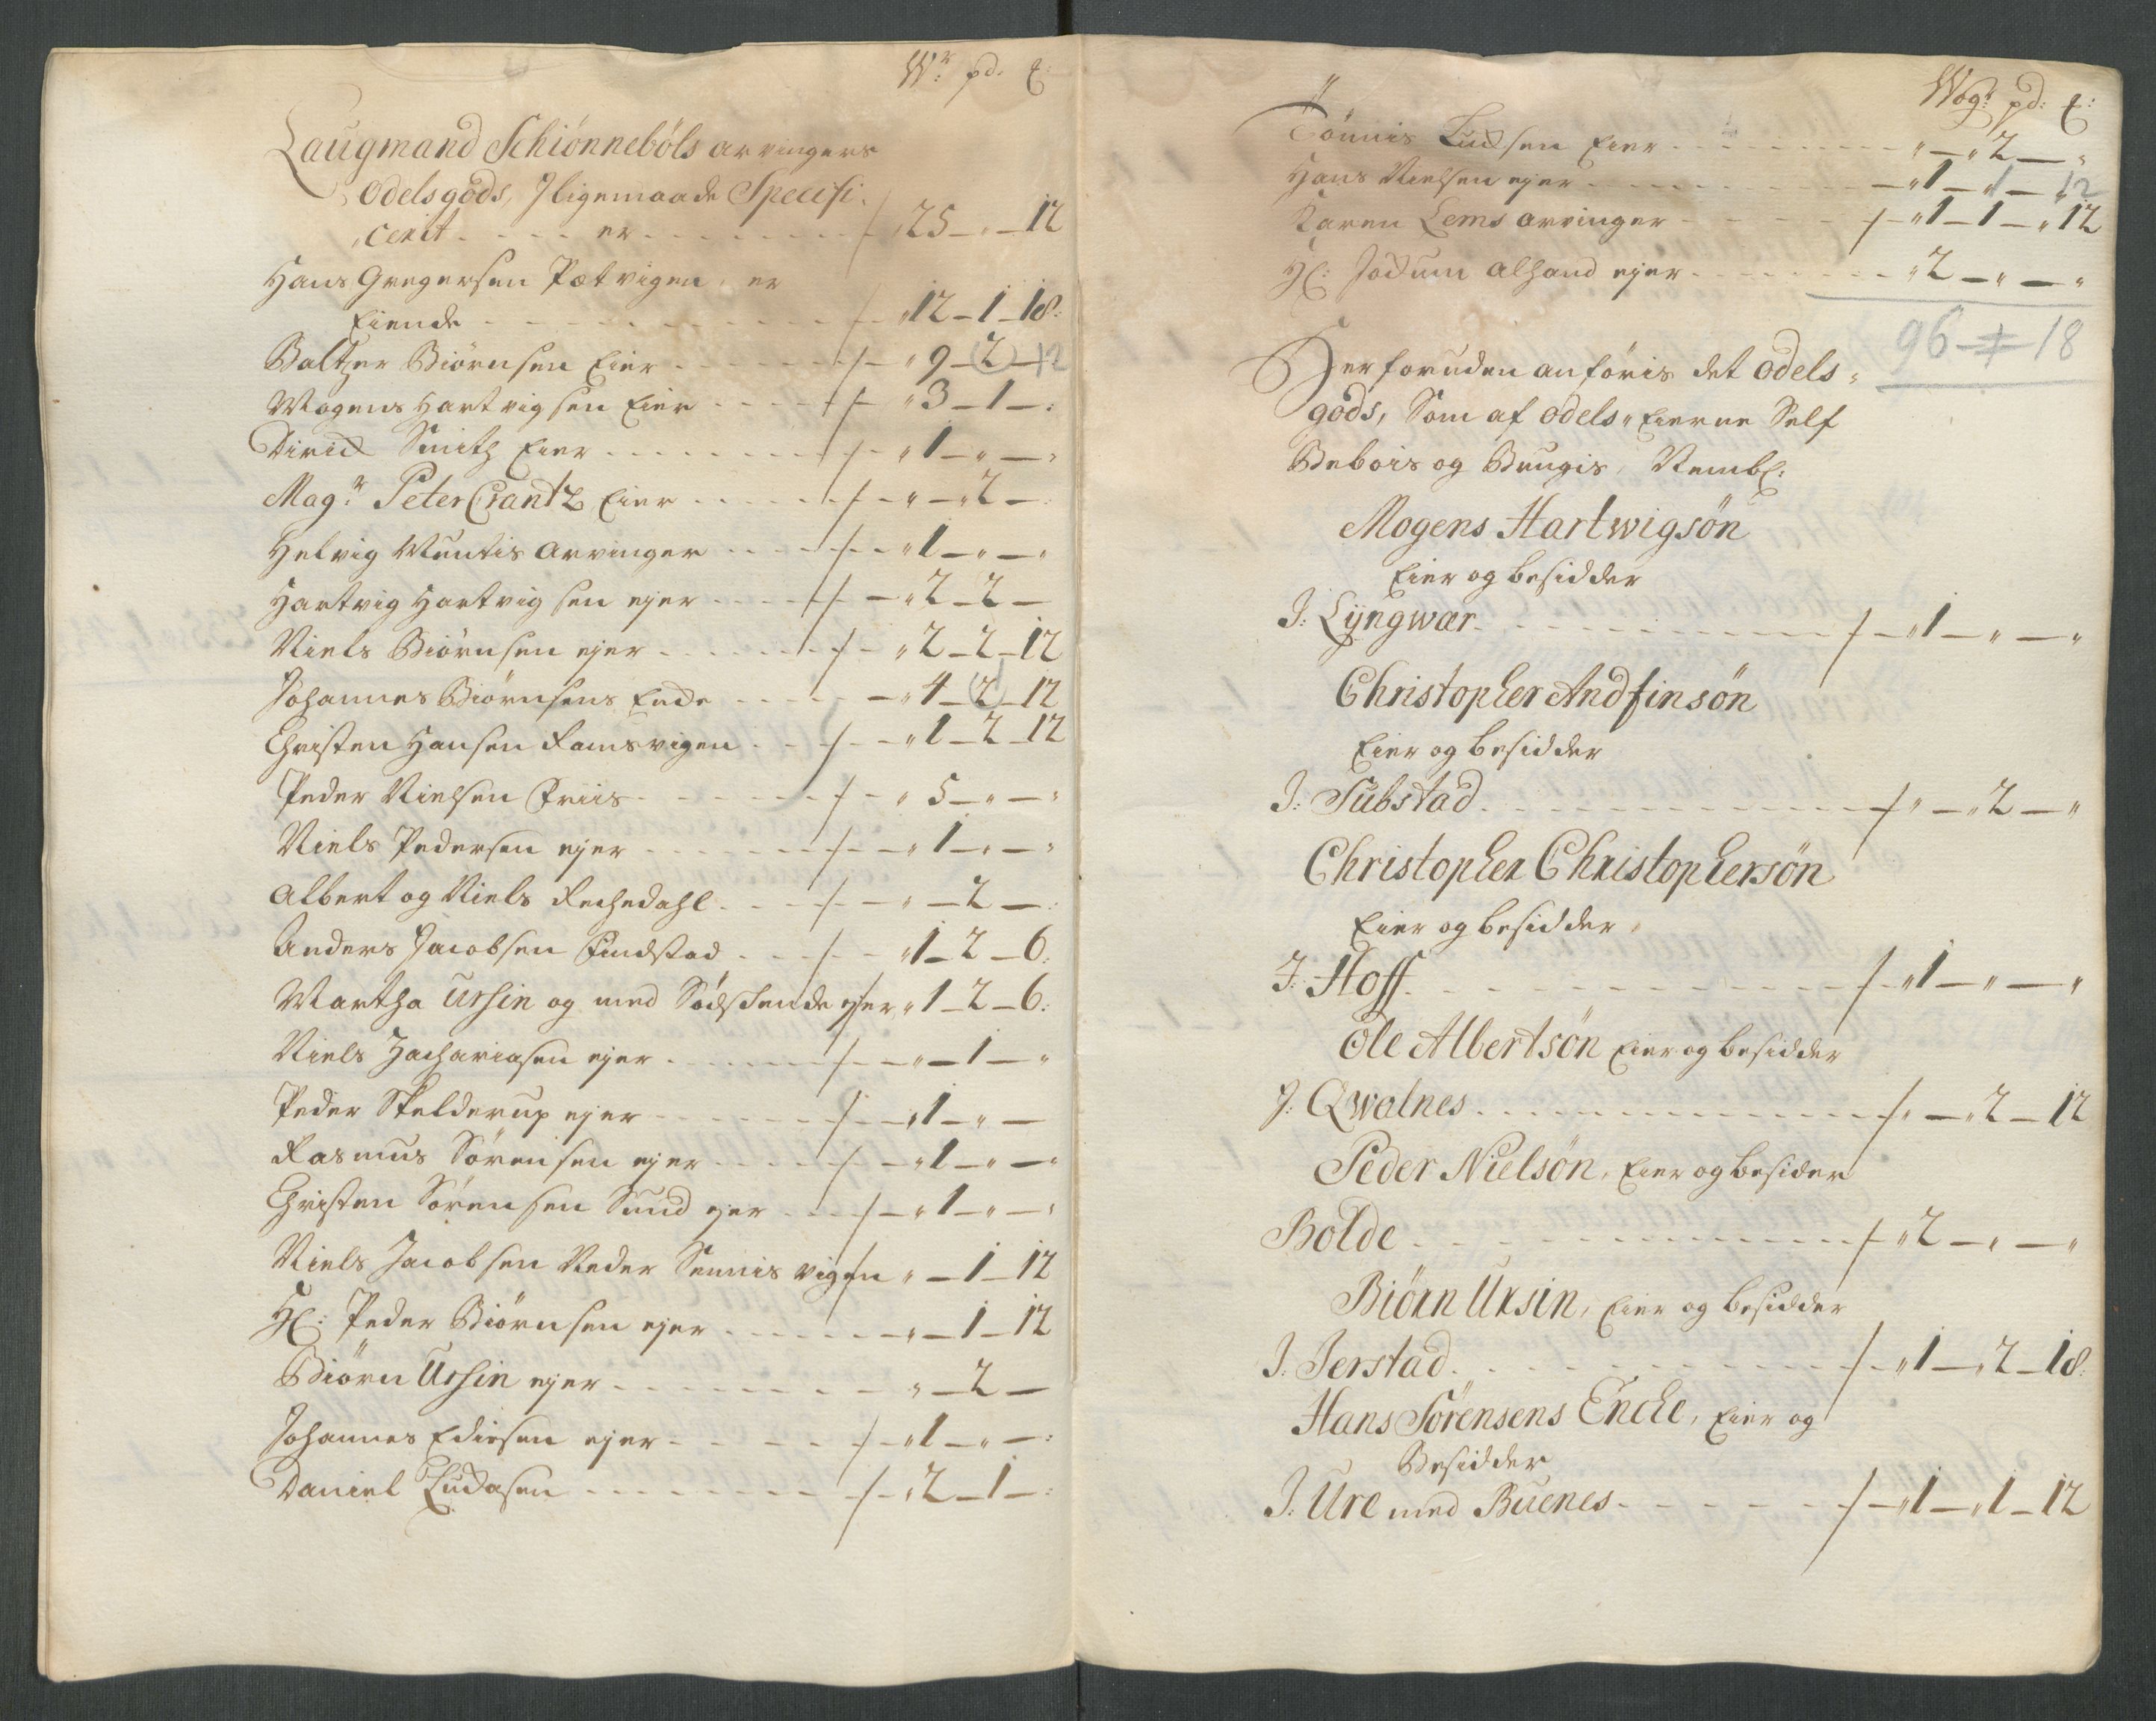 Wr: pd. ℔:
Laugmand Schiönneböls arvingers
Odelsgods, Iligemaade Specifi-
cerit - - - - er - - - - - - - 25 - „ - 12
Hans Gregersen Pætvigen, er
Eiende - - - - - - „12 - 1 - 18:
Baltzer Biörnsen Eier - - - - - „9 - 2 - 12
Mogens Hartvigsen Eier - - - - „3 - 1 - :
Dirich Smith Eier - - - - - „1 - „ - „
Magr: Peter Crantz Eier - - - - „ - „2 - :
Helvig Muntis Arvinger - - - „1 - „ - „
Hartvig Hartvigsen ejer - - - - „2 - 2 -
Niels Biörnsen ejer - - - - - „2 - 2 - 12
Johannes Biörnsens Encke - - - - „4 - 2 - 12
Christen Hansen Ramsvigen - - - „1 - 2 - 12
Peder Nielsen Friis - - - - - „5 - „ - „
Niels Pedersen ejer - - - - - „1 - „ - „
Albert og Niels Rechedahl - - - - „ - 2 - :
Anders Jacobsen Findstad - - - - „1 - 2 - 6:
Martha Ursin og med Södschende ejer „1 - 2 - 6:
Niels Zachariasen ejer - - - - - „ - 1 - „
Peder Skelderup ejer - - - - - „1 - „ -
Rasmus Sörensen ejer - - - - - „1 - „ - „
Christen Sörensen Sund ejer - - - „1 - „ - „
Niels Jacobsen Neder Sennisvigen „ - 1 - 12
Hl: Peder Biörnsen ejer - - - - - „ - 1 - 12
Biörn Ursin ejer - - - - - - „ - 2 -
Johannes Edisen ejer - - - - - „1 - „ - :
Daniel Ludasen - - - - - - „2 - 1 - :
Wog: pd: ℔:
Tönnis Ludsen Eier - - - - - „ - „2 - „
Hans Nielsen ejer - - - - - „1 - 1 - 12
Karen Lems Arvinger - - - - - „1 - 1 - „12
Hl: Jochum Alhand ejer - - - - „2 - „ - „
96 - 1 - 18
Her foruden anföris det odels-
gods, Som af odels„ Eierne Self
Bebois og Brugis, Nembl:
Mogens Hartwigsön
Eier og besidder
I: Lÿngwær - - - - - „1 - „ - „
Christopher Andfinsön
Eier og besidder
I: Substad - - - - - „ - „2 - „
Christopher Christophersön
Eier og besidder
I: Hoff - - - - - „1 - „ - „
Ole Albertsön Eier og besidder
I: Qwalnes - - - - - „ - „2 - 12
Peder Nielsön, Eier og besider
Bolde - - - - - „2 - „ - „
Biörn Ursin, Eier og besidder
I: Jerstad - - - - - „1 - „2 - 18:
Hans Sörensens Encke, Eier og
Besidder
I: Ure med Buenes - - - - - „1 - „1 - 12